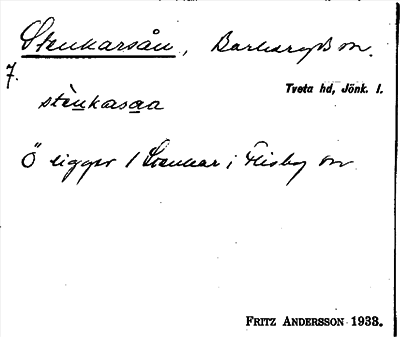 Stenkarsån, Barkeryds sn.
7.
Tveta hd, Jönk. l.
stènkasaa
Ö ligger 1 Stenkar i Flisby sn
FRITZ ANDERSSON 1933.